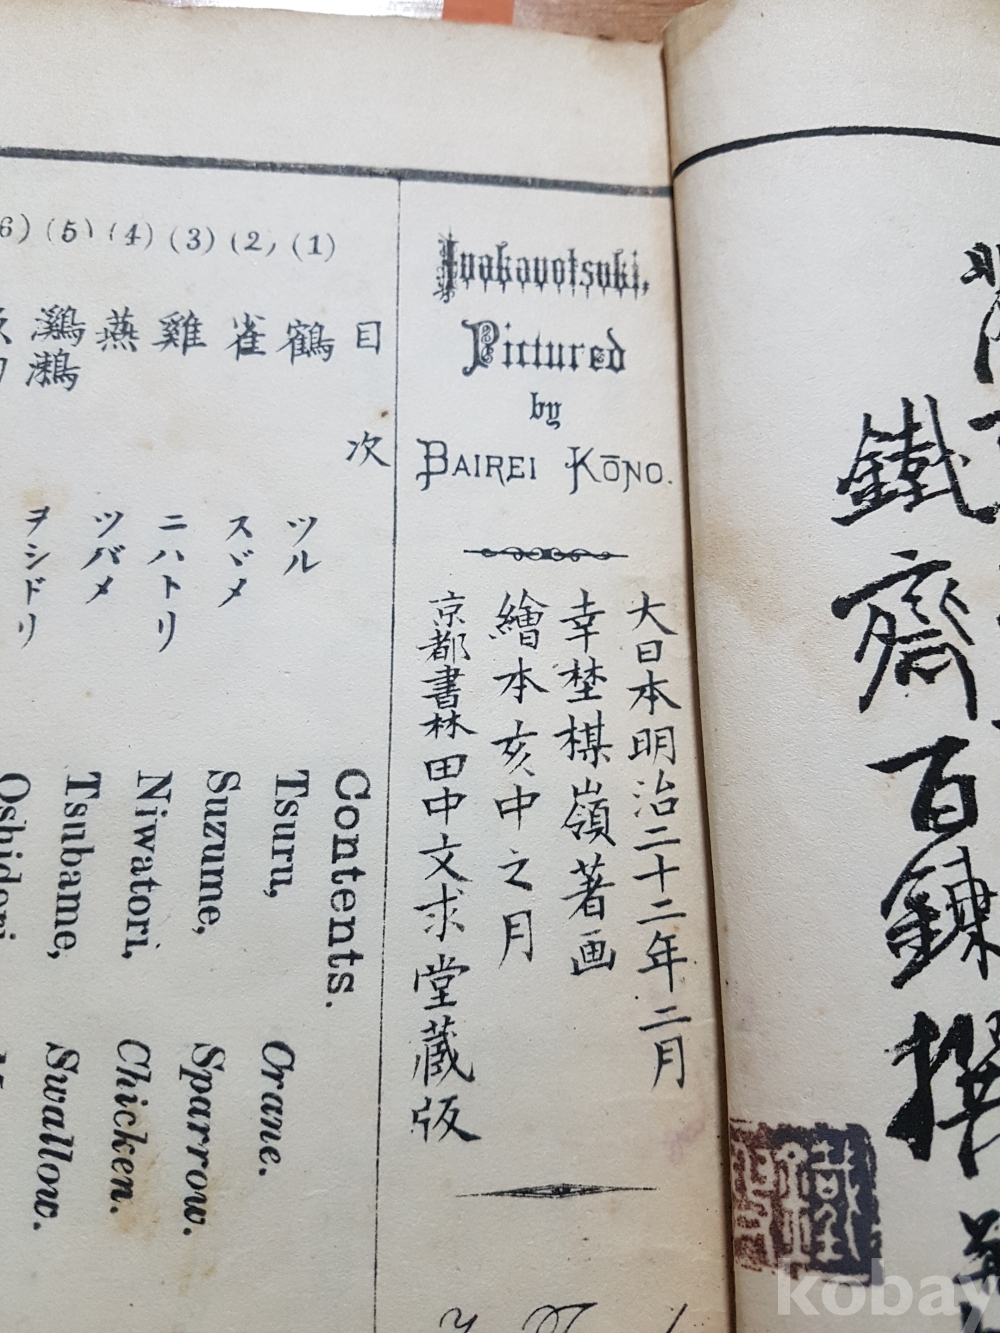 鐵齋百鍊撰
Inakanotsuki,
Pictured
by
BAIREI KŌNO.
大日本明治二十二年二月
幸埜楳嶺著画
繪本亥中之月
京都書林田中文求堂藏版
目次 Contents.
(1) 鶴 ツル Tsuru, Orane.
(2) 雀 スヾメ Suzume, Sparrow.
(3) 雞 ニハトリ Niwatori, Chicken.
(4) 燕 ツバメ Tsubame, Swallow.
(5) 鸂鷘 ヲシドリ Oshidori
6)
kobay